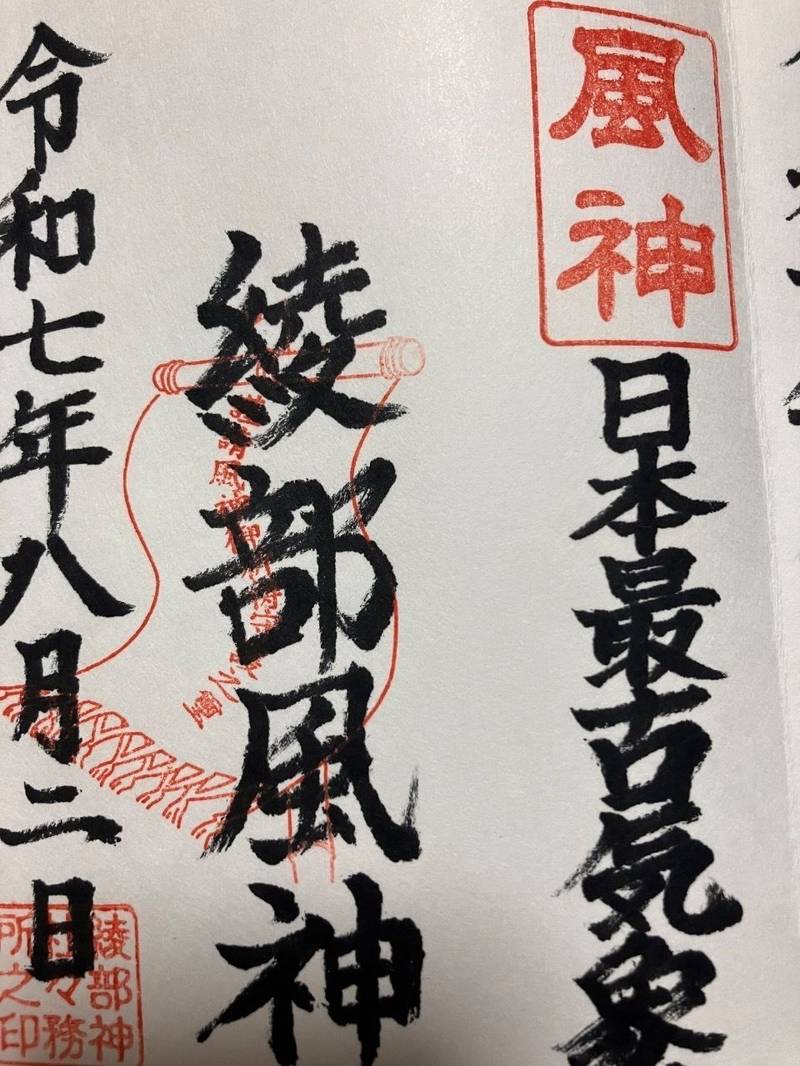 風神
日本最古気象
綾部風神
令和七年八月二日
綾部神
社々務
所之印